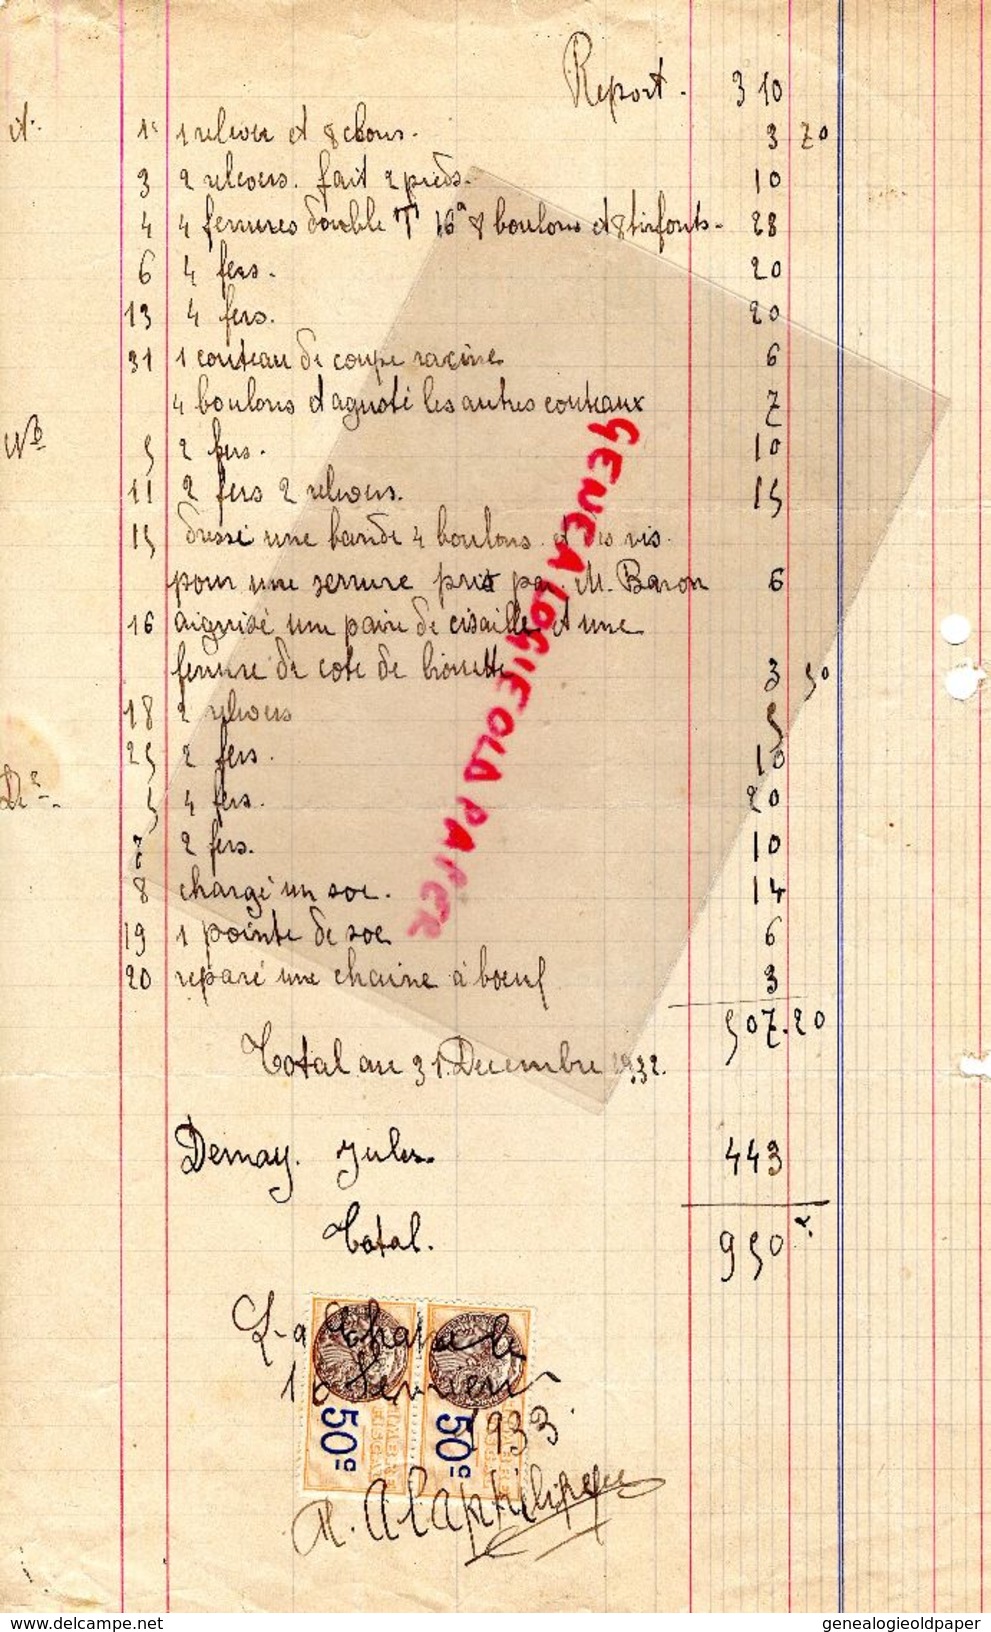 Report. 310
et. 1er 1 relever et 8 clous. 3 70
3 2 relevers. fait 2 pieds. 10
4 4 ferrures double T 16 8 boulons et 8 tirfonts. 28
6 4 fers. 20
13 4 fers. 20
31 1 couteau de coupe racine 6
4 boulons et agusté les autres couteaux 7
Nb 5 2 fers. 10
11 2 fers 2 relevers. 15
15 dressé une bande 4 boulons et des vis
pour une serrure pris par M. Baron 6
16 aiguisé une paire de cisaille et une
ferrure de cote de brouette 3 50
18 2 relevers 5
25 2 fers. 10
De 5 4 fers. 20
7 2 fers. 10
8 chargé un soc. 14
19 1 pointe de soc 6
20 reparé une chaine à boeuf 3
507.20
Total au 31 Decembre 1932.
Demay. Jules. 443
Total. 950
le
1933.
50c
50c
GENEALOGIEOLDPAPER
genealogieoldpaper